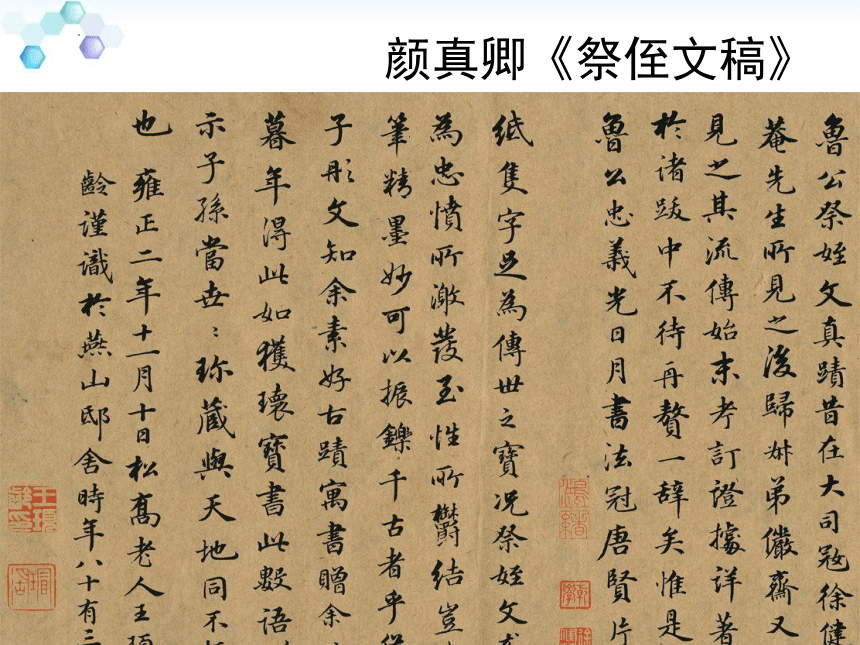 颜真卿《祭侄文稿》
魯公祭姪文真蹟昔在大司寇徐健
菴先生所見之後歸淋弟儼齋又
見之其流傳始末考訂證據詳著
於諸跋中不待再贅一辭矣惟是
魯公忠義光日月書法冠唐賢片
紙隻字足為傳世之寶況祭姪文尤
為忠憤所激發至性所鬱結豈
筆精墨妙可以振鑠千古者乎
子彤文知余素好古蹟寓書贈余
暮年得此如獲瓌寶書此數語
示子孫當世〻珍藏與天地同不
也 雍正二年十一月十日松喬老人王頊
齡謹識於燕山邸舍時年八十有三